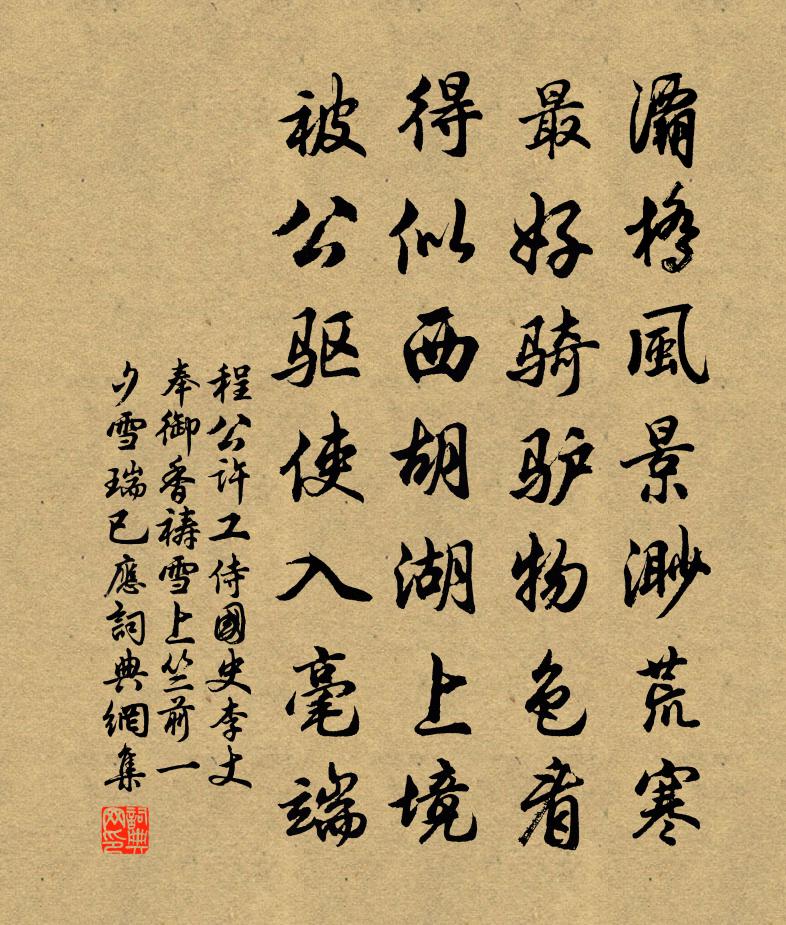 灞橋風景渺荒寒
最好骑驴物色看
得似西胡湖上境
被公驱使入毫端
程公许工侍國史李丈
奉御香祷雪上竺前一
夕雪瑞已應詞典網集
詞典网印